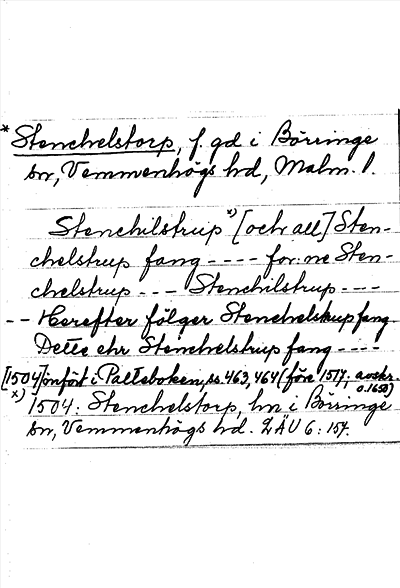 * Stenchelstorp, f. gd i Börringe
sn, Vemmenhögs hd, Malm. l.
Stenchilstrup x) [och all] Sten-
chelstrup fang ---- for:ne Sten-
chelstrup --- Stenchilstrup ---
-- Herefter fölger Stenchelskup fang
Dette ehr Stenchelstrup fang ----
[1504] önfört i Palteboken, ss. 463, 464 (före 1517; avskr.
o. 1650)
x) 1504: Stenchelstorp, hn i Börringe
sn, Vemmenhögs hd. LÄU 6: 157.